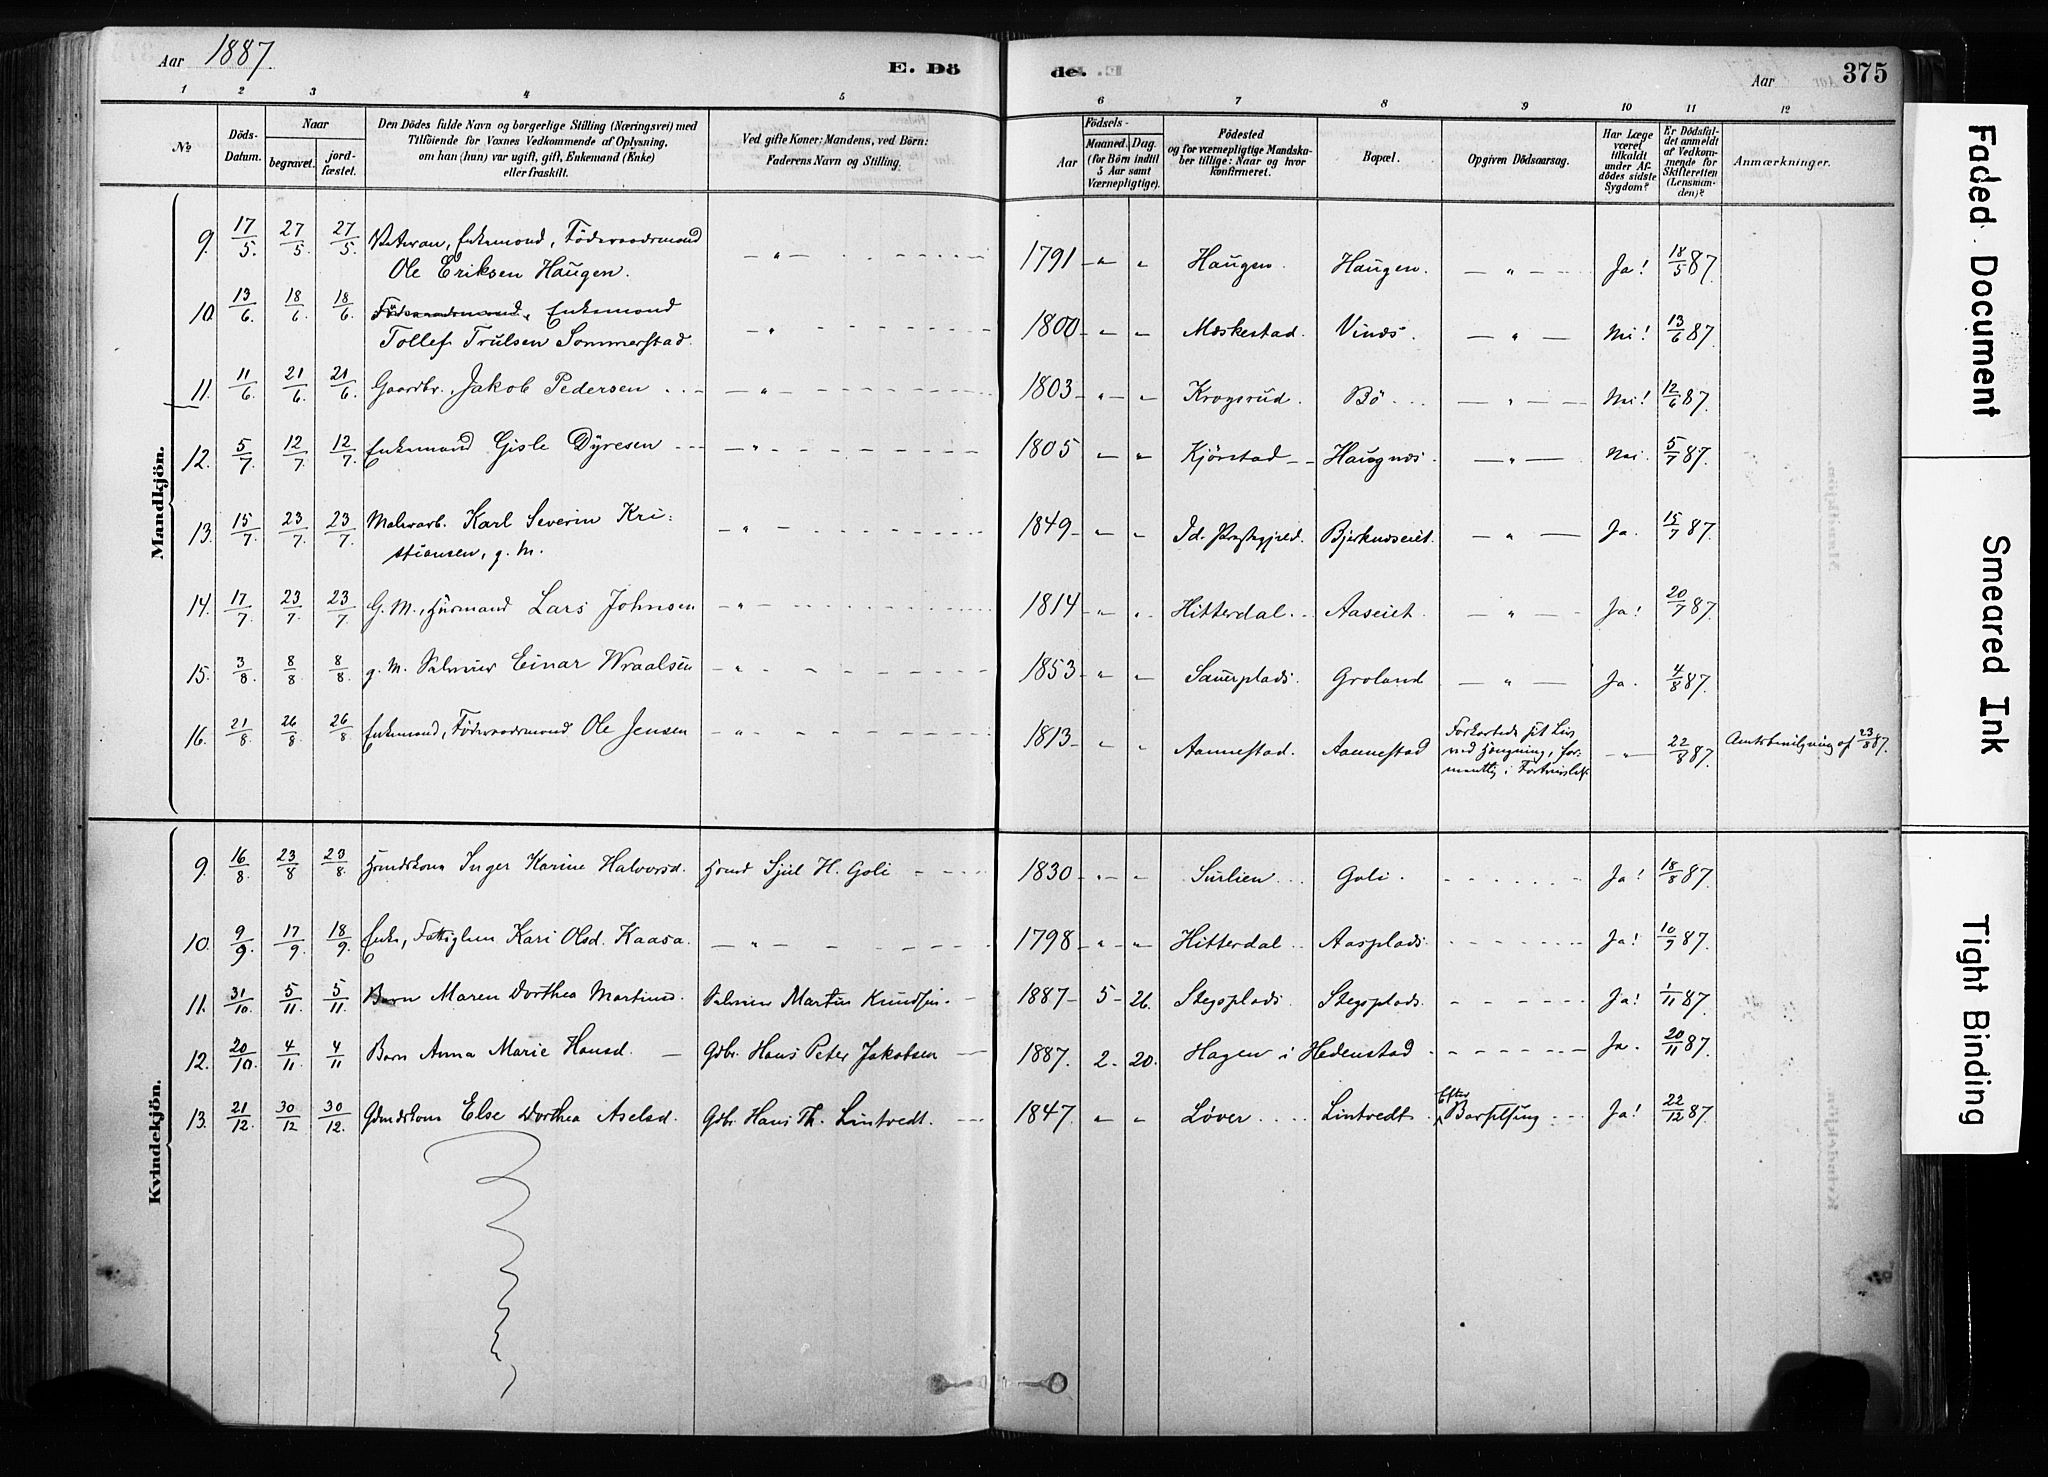 Aar 1887. E. Dö de. Aar 375
1 2 3 4 5 6 7 8 9 10 11 12
№ Döds-Datum. Naar begravet. jordfæstet.
Den Dödes fulde Navn og borgerlige Stilling (Næringsvei) med
Tilföiende for Voxnes Vedkommende af Oplysning,
om han (hun) var ugift, gift, Enkemand (Enke)
eller fraskilt.
Ved gifte Koner: Mandens, ved Börn:
Faderens Navn og Stilling.
Födsels-
Aar Maaned. Dag.
(for Börn indtil
5 Aar samt
Værnepligtige).
Födested
og for værnepligtige Mandska-
ber tillige: Naar og hvor
konfirmeret.
Bopæl.
Opgiven Dödsaarsag.
Har Læge
været
tilkaldt
under Af-
dödes sidste
Sygdom?
Er Dödsfal-
det anmeldt
af Vedkom-
mende for
Skifteretten
(Lensman-
den)?
Anmærkninger.
Mandkjön.
9. 17/5. 27/5. 27/5. Veteran, Enkemand, Föderaadsmand
Ole Eriksen Haugen. — „ — 1791 „ „ Haugen. Haugen. — „ — Ja! 18/5 87.
10. 13/6. 18/6. 18/6. Föderaadsmand, Enkemand
Tollef Trulsen Sommerstad. — „ — 1800 „ „ Mæskestad. Vinæs. — „ — Nei! 13/6 87.
11. 11/6. 21/6. 21/6. Gaardbr. Jakob Pedersen — „ — 1803 „ „ Krogsrud. Bö — „ — Nei! 12/6 87.
12. 5/7. 12/7. 12/7. Enkemand Gisle Dyresen — „ — 1805 „ „ Kjörstad Haugnæs. — „ — Nei. 5/7 87.
13. 15/7. 23/7. 23/7. Karl Severin Kri-
stiansen, g. M. — „ — 1849 „ „ Id. Præstegjeld. Bjerknæseiet. — „ — Ja. 15/7 87.
14. 17/7. 23/7. 23/7. G. M., Husmand Lars Johnsen — „ — 1814 „ „ Hitterdal. Aaseiet. „ — Ja! 20/7 87.
15. 3/8. 8/8. 8/8. g. M. Einar Wraalsen „ 1853 „ „ Sauerplads. Groland — „ — Ja. 4/8 87.
16. 21/8. 26/8. 26/8. Enkemand, Föderaadsmand Ole Jensen „ 1813 „ „ Aannestad. Aannestad Forkortede sit Liv
ved Hængning, for-
mentlig i Fortvivlelse. „ 22/8 87. Amtsbevilgning af 23/8 87.
Kvindekjön.
9. 16/8. 23/8. 23/8. Inger Karine Halvorsd. H. Goli 1830 „ „ Surlien Goli. Ja! 18/8 87.
10. 9/9. 17/9. 18/9. Enke, Fattiglem Kari Olsd. Kaasa. — „ — 1798 „ „ Hitterdal Aasplads. Ja! 10/9 87.
11. 31/10. 5/11. 5/11. Barn Maren Dorthea Martinsd. Martin Knudsen. 1887 5 26. Stegsplads. Stegsplads. Ja! 1/11 87.
12. 20/10. 4/11. 4/11. Barn Anna Marie Hansd. — Gdbr. Hans Peter Jakobsen 1887. 2 20. Hagen i Hedenstad. Ja. 20/11 87.
13. 21/12. 30/12. 30/12. Gdmdskone Else Dorthea Axelsd. Gdbr. Hans Th. Lintvedt. 1847. „ „ Löver. Lintvedt. Efter Barselseng Ja! 22/12 87.
Faded Document
Smeared Ink
Tight Binding